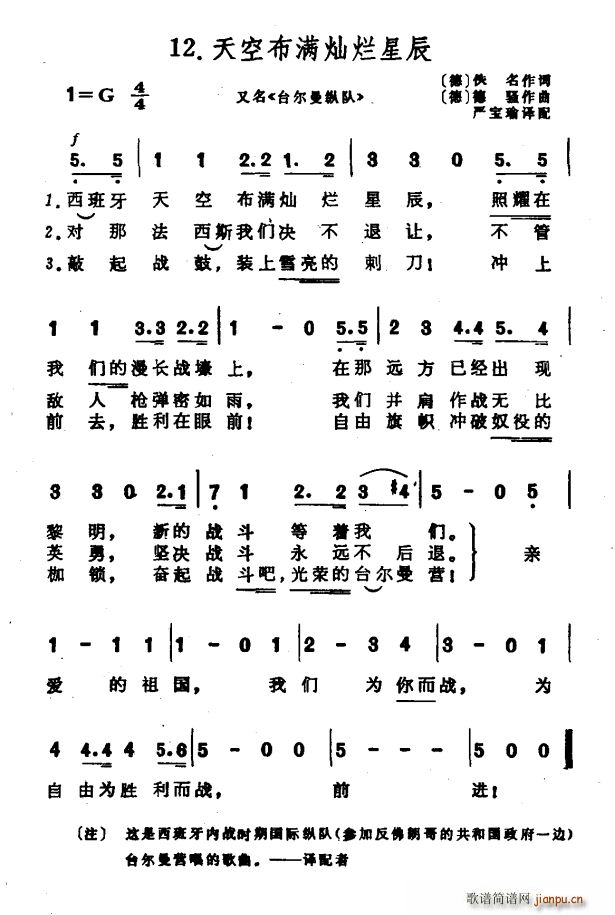 12. 天空布满灿烂星辰
1=G 4/4
又名《台尔曼纵队》
〔德〕佚 名作词
〔德〕德 骚作曲
严宝瑜译配
f
5. 5 | 1 1 2.2 1. 2 | 3 3 0 5. 5 |
1. 西班牙 天 空 布满灿 烂 星 辰， 照耀在
2. 对 那 法 西斯我们决 不 退 让， 不 管
3. 敲 起 战 鼓，装上雪亮的 刺 刀！ 冲 上
1 1 3.3 2.2 | 1 - 0 5.5 | 2 3 4.4 5. 4 |
我 们的漫长战壕 上， 在那 远方已经出 现
敌 人 枪弹密如 雨， 我们 并肩作战无 比
前 去，胜利在眼 前！ 自由 旗帜冲破奴役的
3 3 0 2.1 | 7 1 2. 2 3 #4 | 5 - 0 5 |
黎 明， 新的 战 斗 等 着我 们。
英 勇， 坚决 战 斗 永 远不 后 退。 亲
枷 锁， 奋起 战 斗吧，光荣的台尔曼 营！
1 - 1 1 | 1 - 0 1 | 2 - 3 4 | 3 - 0 1 |
爱 的 祖 国， 我 们 为 你而 战， 为
4 4.4 4 5.6 | 5 - 0 0 | 5 - - - | 5 0 0 ‖
自 由为 胜 利而 战， 前 进！
〔注〕 这是西班牙内战时期国际纵队（参加反佛朗哥的共和国政府一边）
台尔曼营唱的歌曲。——译配者
歌谱简谱网
jianpu.cn